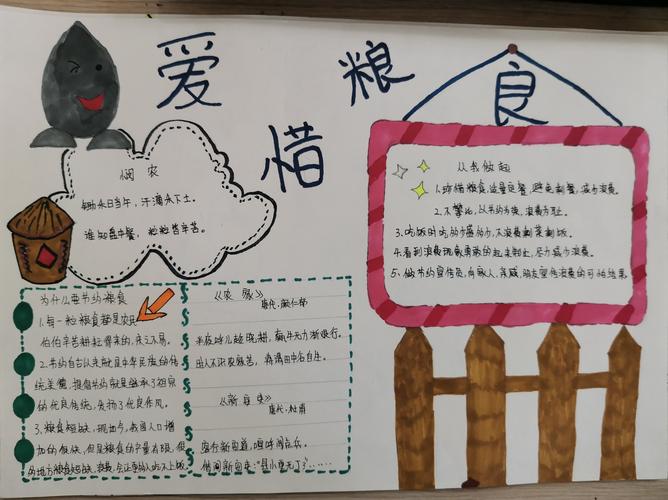 爱惜粮食
悯农
锄禾日当午，汗滴禾下土。
谁知盘中餐，粒粒皆辛苦。
从我做起
1.珍惜粮食，适量定餐，避免剩餐，减少浪费。
2.不攀比，以节约为荣，浪费为耻。
3.吃饭时吃多少盛多少，不浪费剩菜剩饭。
4.看到浪费现象勇敢的起来制止，尽力减少浪费。
5.做节约宣传员，向家人、亲戚、朋友宣传浪费的可怕结果
为什么要节约粮食
1.每一粒粮食都是农民
伯伯辛苦耕耘得来的，来之不易。
2.节约自古以来就是中华民族的传
统美德，提倡节约就是继承了祖宗
的优良传统，发扬了优良作风。
3.粮食短缺，现如今，我国人口增
加的很快，但是粮食的产量有限，很
多地方粮食短缺
《农家》
唐代·颜仁郁
半夜呼儿趁晓耕，羸牛无力渐艰行。
时人不识农家苦，将谓田中谷自生。
《新安吏》
唐代·杜甫
客行新安道，喧呼闻点兵。
借问新安吏："县小更无丁？"……